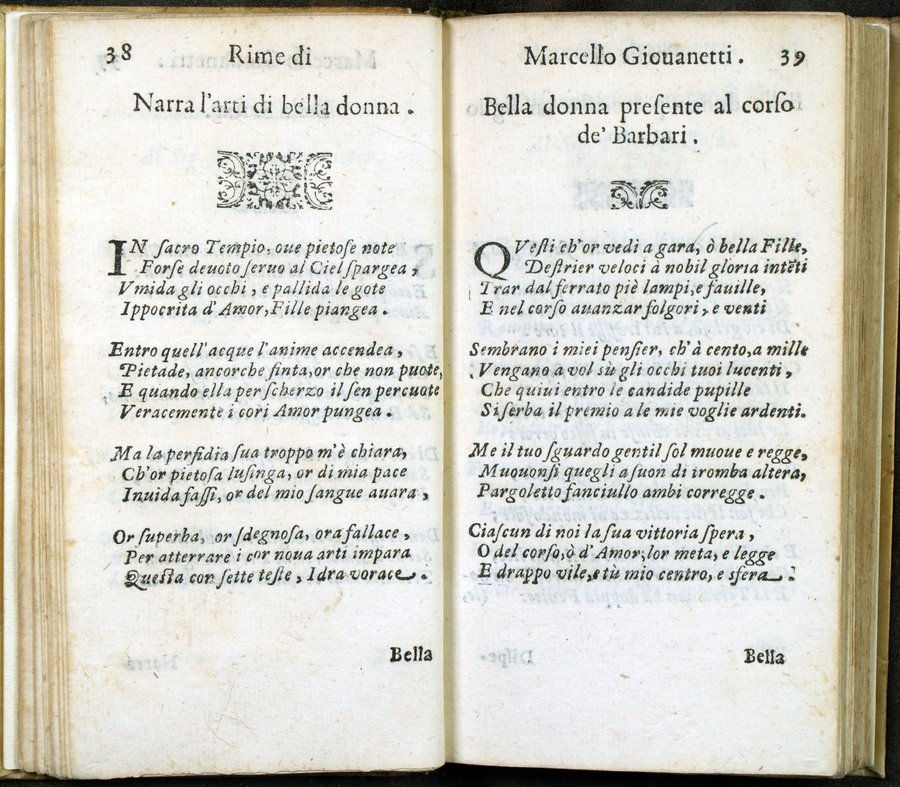 38 Rime di
Narra l'arti di bella donna.
IN ſacro Tempio, oue pietoſe note
Forſe deuoto ſeruo al Ciel ſpargea,
Vmida gli occhi, e pallida le gote
Ippocrita d'Amor, Fille piangea.
Entro quell'acque l'anime accendea,
Pietade, ancorche finta, or che non puote,
E quando ella per ſcherzo il ſen percuote
Veracemente i cori Amor pungea.
Ma la perfidia ſua troppo m'è chiara,
Ch'or pietoſa luſinga, or di mia pace
Inuida faſſi, or del mio ſangue auara,
Or ſuperba, or ſdegnoſa, ora fallace,
Per atterrare i cor noua arti impara
Queſta con ſette teſte, Idra vorace.
Bella
Marcello Giouanetti. 39
Bella donna preſente al corſo
de' Barbari.
QVeſti ch'or vedi a gara, ò bella Fille,
Deſtrier veloci à nobil gloria intēti
Trar dal ferrato piè lampi, e fauille,
E nel corſo auanzar folgori, e venti
Sembrano i miei penſier, ch'à cento, a mille
Vengano a vol sù gli occhi tuoi lucenti,
Che quiui entro le candide pupille
Si ſerba il premio a le mie voglie ardenti.
Me il tuo ſguardo gentil ſol muoue e regge,
Muouonſi quegli a ſuon di tromba altera,
Pargoletto fanciullo ambi corregge.
Ciaſcun di noi la ſua vittoria ſpera,
O del corſo, ò d'Amor, lor meta, e legge
E drappo vile, e tù mio centro, e sfera.
Bella